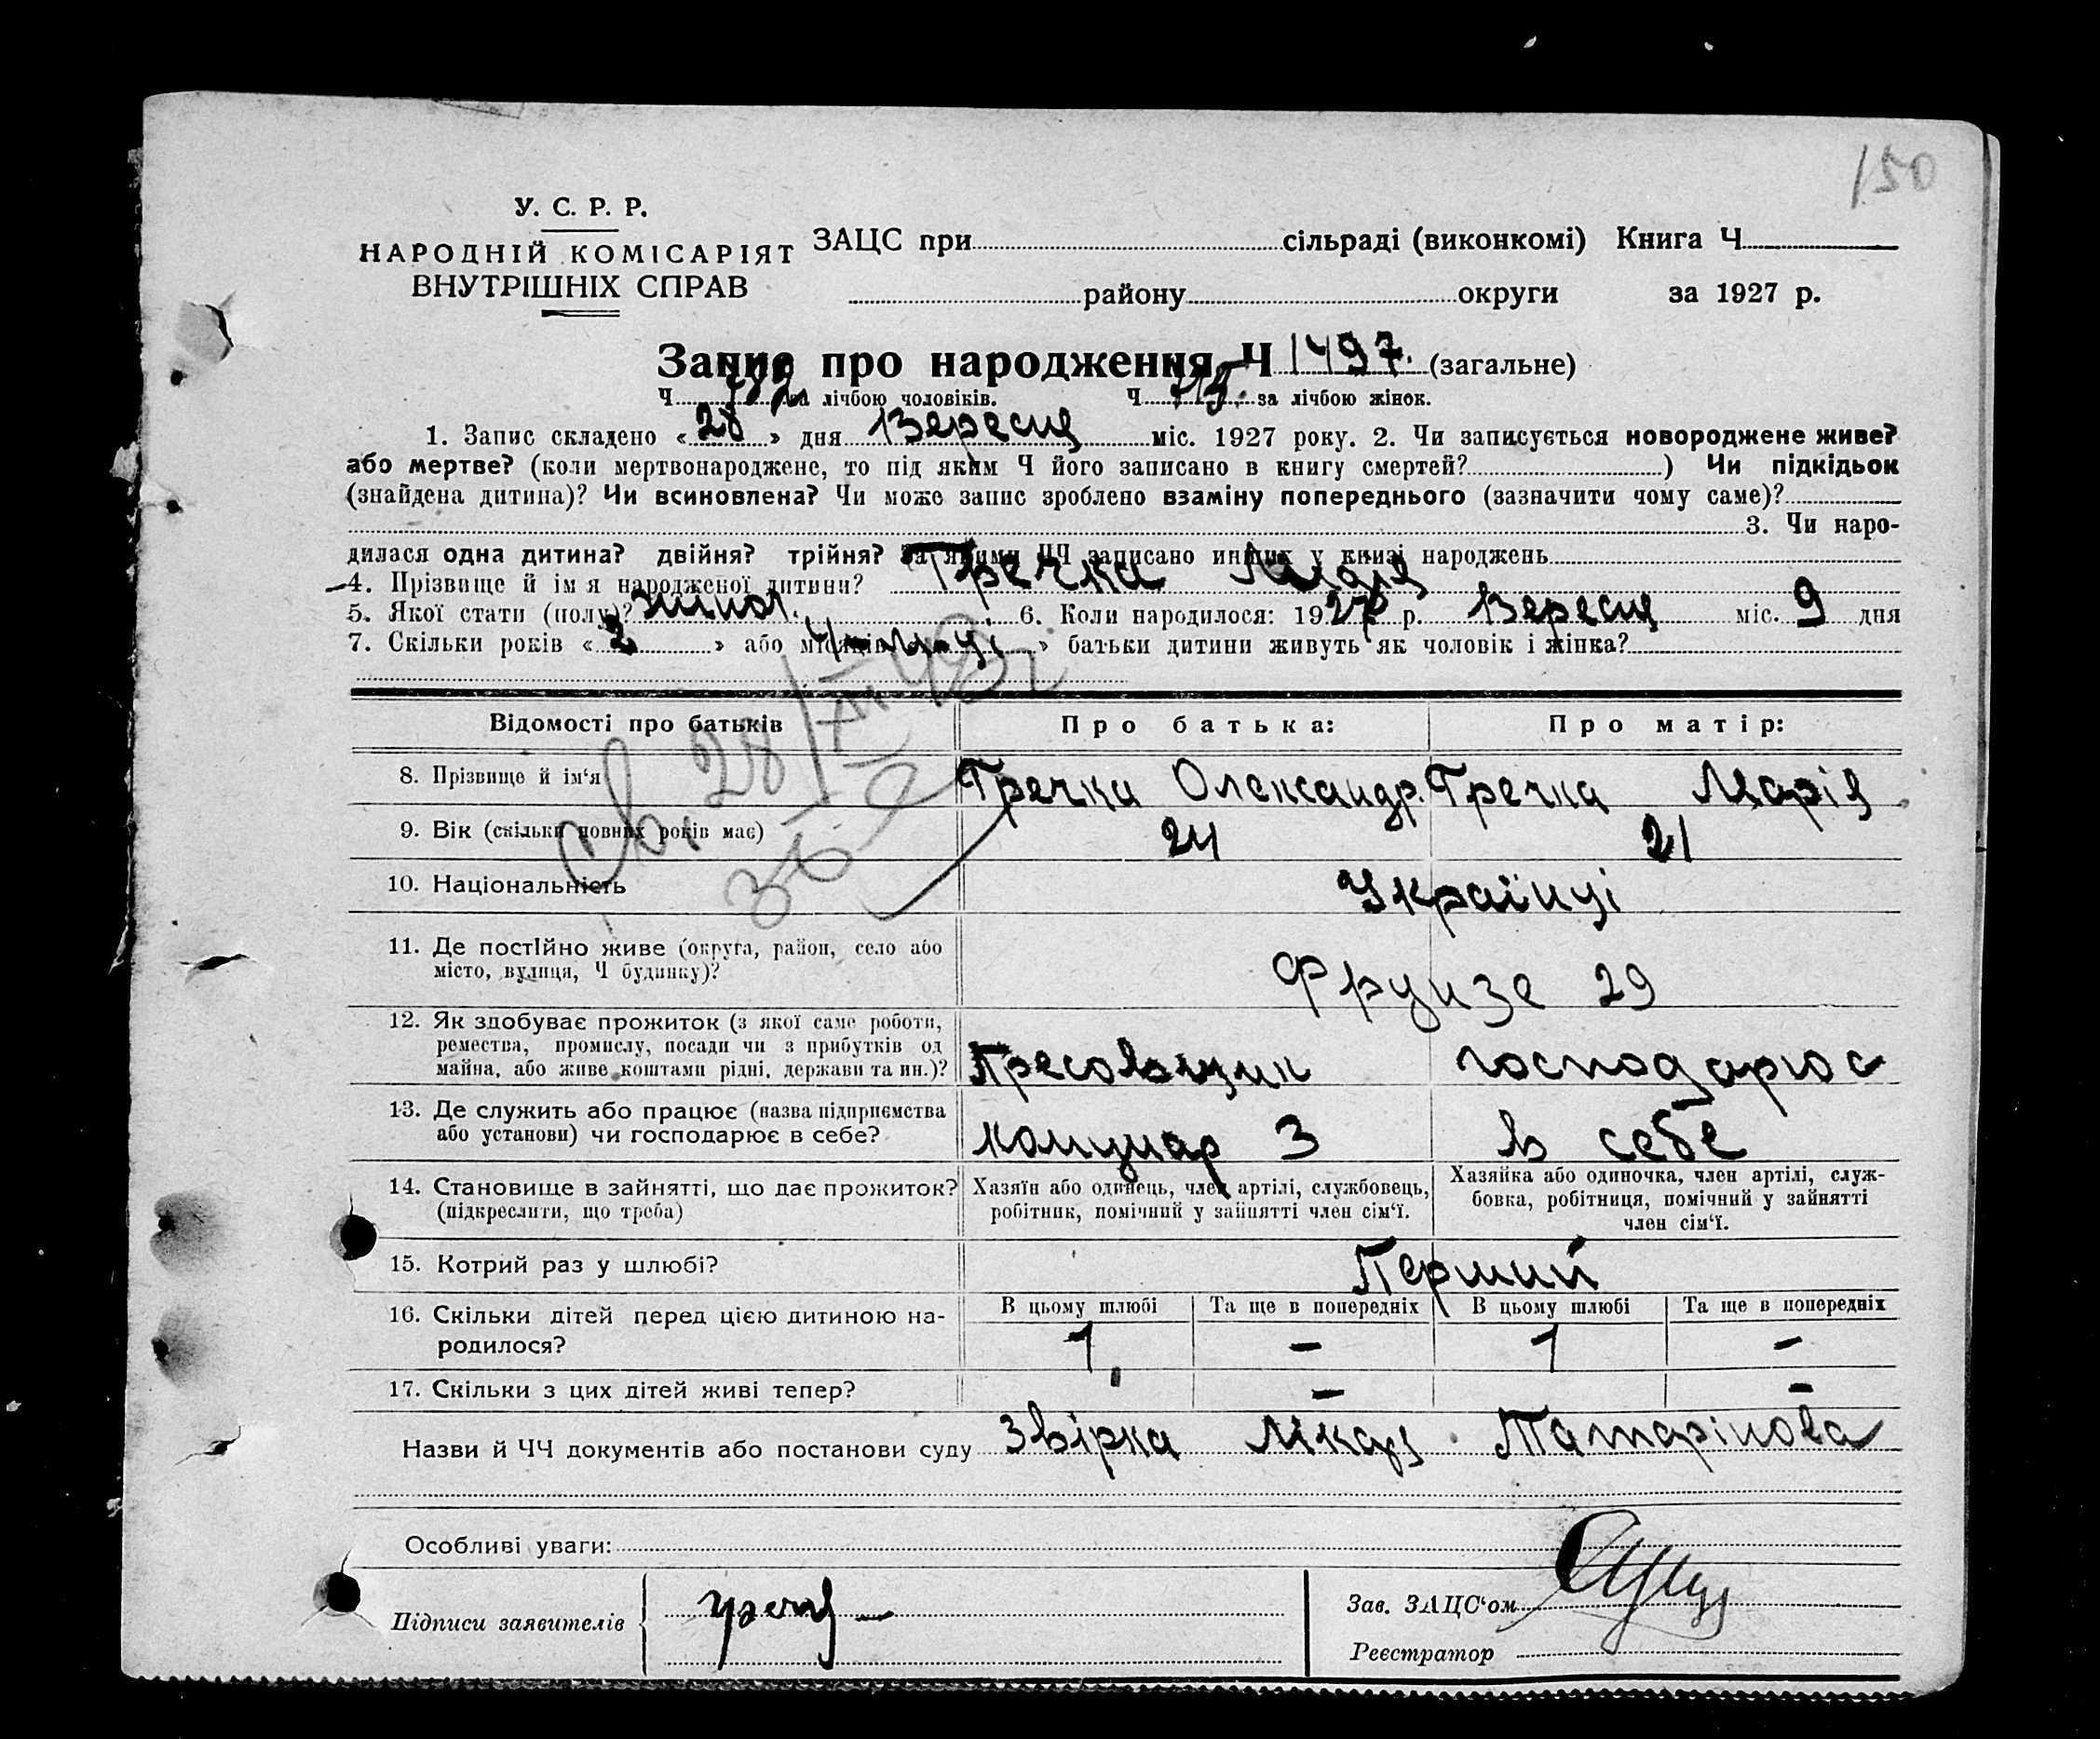 150
У. С. Р. Р.
НАРОДНІЙ КОМІСАРІЯТ
ВНУТРІШНІХ СПРАВ
ЗАЦС при сільраді (виконкомі) Книга Ч
району округи за 1927 р.
Запис про народження Ч 1497. (загальне)
Ч 782 за лічбою чоловіків. Ч 715. за лічбою жінок.
1. Запис складено « 28 » дня Вересня міс. 1927 року. 2. Чи записується новороджене живе?
або мертве? (коли мертвонароджене, то під яким Ч його записано в книгу смертей? ) Чи підкідьок
(знайдена дитина)? Чи всиновлена? Чи може запис зроблено взаміну попереднього (зазначити чому саме)?
3. Чи наро-
дилася одна дитина? двійня? трійня? За якими ЧЧ записано инших у книзі народжень
4. Прізвище й імя народженої дитини? Гречка Лидія
5. Якої стати (полу)? жіноч. 6. Коли народилося: 1927 р. Вересня міс. 9 дня
7. Скільки років « 2 » або місяців » батьки дитини живуть як чоловік і жінка?
Св. 28/XII 48
Відомості про батьків Про батька: Про матір:
8. Прізвище й ім‘я Гречка Олександр. Гречка Марія
9. Вік (скільки повних років має) 24 21
10. Національність Українці
11. Де постійно живе (округа, район, село або
місто, вулиця, Ч будинку)? Фрунзе 29
12. Як здобуває прожиток (з якої саме роботи,
ремества, промислу, посади чи з прибутків од
майна, або живе коштами рідні, держави та ин.)? Пресовщик господарює
13. Де служить або працює (назва підприємства
або установи) чи господарює в себе? комунар 3 в себе
14. Становище в зайнятті, що дає прожиток?
(підкреслити, що треба)
Хазяїн або одинець, член артілі, службовець,
робітник, помічний у зайнятті член сім‘ї.
Хазяйка або одиночка, член артілі, служ-
бовка, робітниця, помічний у зайнятті
член сім‘ї.
15. Котрий раз у шлюбі? Перший
16. Скільки дітей перед цією дитиною на-
родилося?
В цьому шлюбі Та ще в попередніх В цьому шлюбі Та ще в попередніх
1 — 1 —
17. Скільки з цих дітей живі тепер? — —
Назви й ЧЧ документів або постанови суду Звірка Лікаря Татарінова
Особливі уваги:
Підписи заявителів
Зав. ЗАЦС‘ом
Реєстратор